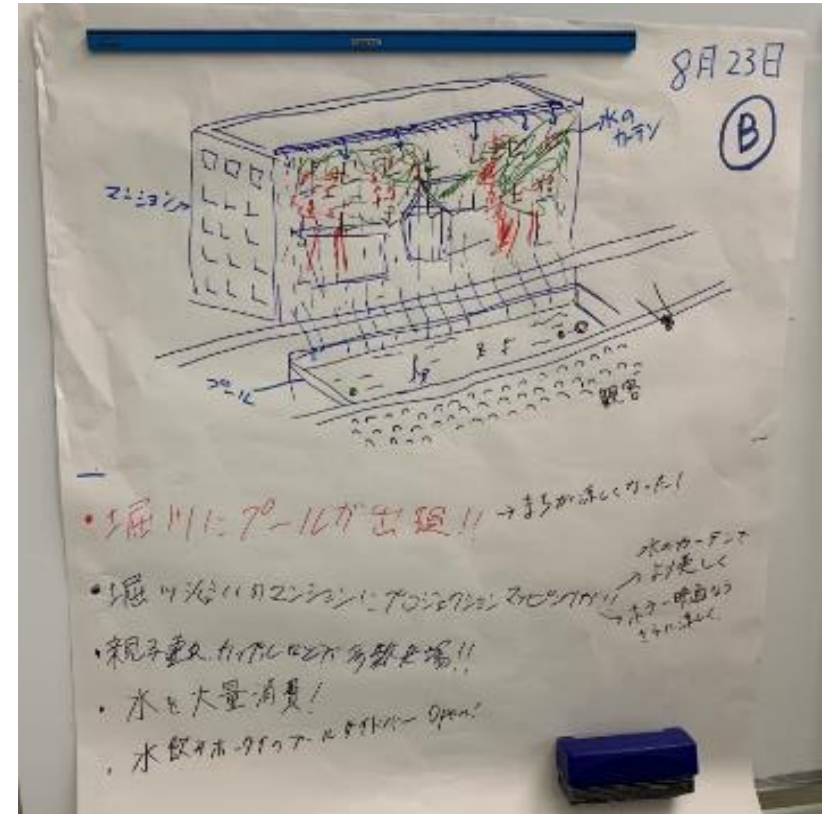 8月23日
B
水の
カーテン
マンション
プール
観客
・堀川にプールが出現!! →まちが涼しくなった!
・堀川沿いのマンションにプロジェクションマッピングが!!
→水のカーテンで
より美しく
→ホラー映画なら
さらに涼しく
・親子連れ、カップルなどが多数来場!!
・水を大量消費!
・水飲み放題のプールサイドバー Open!